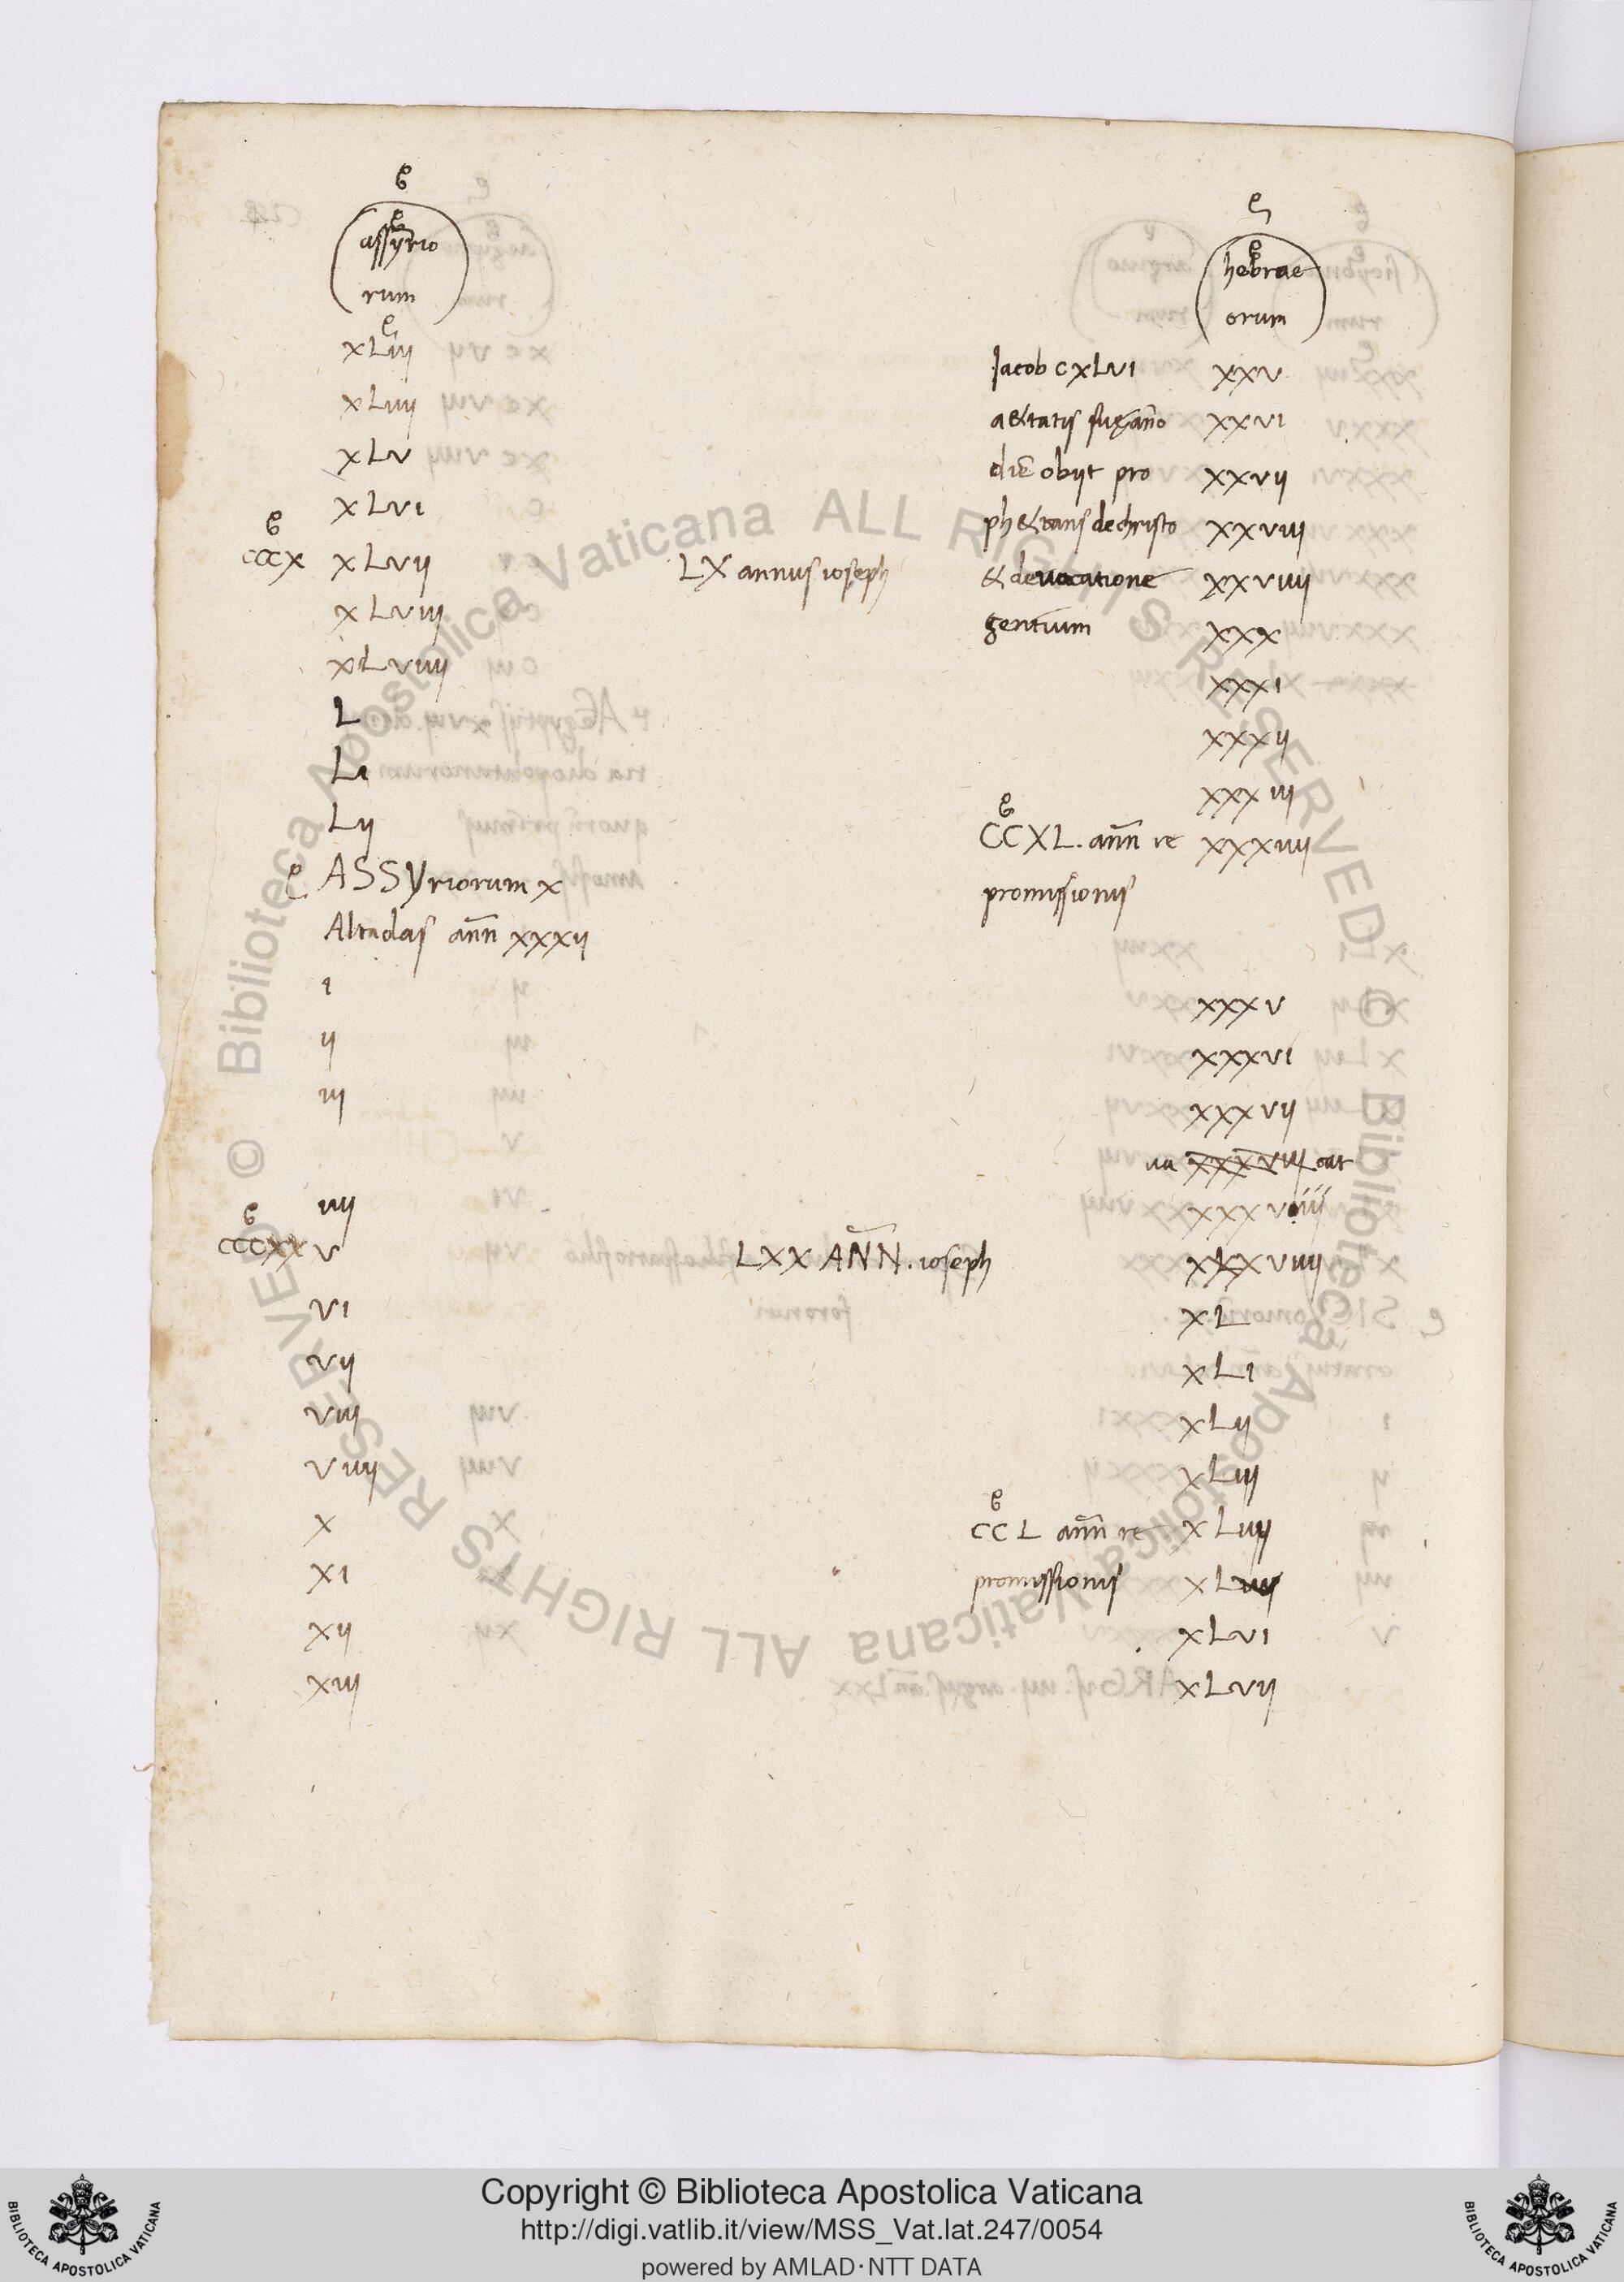 assyrio
rum
hebrae
orum
xLiij
xLiiij
xLv
xLvi
cccx xLvij
xLviij
xLviiij
L
Li
Lij
ASSyriorum x
Altadas an̄n xxxij
i
ij
iij
iiij
cccxx v
vi
vij
viij
viiij
x
xi
xij
xiij
LX annus ioseph
LXX AN̄N. ioseph
Jacob cxLvi xxv
a&tatis suę an̄o xxvi
diē obijt pro xxvij
ph&tans de christo xxviij
& de vocatione xxviiij
gentium xxx
xxxi
xxxij
xxxiij
CCXL. an̄n re xxxiiij
promissionis
xxxv
xxxvi
xxxvij
va xxxviij cat
xxxviiij
xL
xLi
xLij
xLiij
CCL an̄n re xLiiij
promissionis
xLvi
xLvij
© Biblioteca Apostolica Vaticana ALL RIGHTS RESERVED
© Biblioteca Apostolica Vaticana ALL RIGHTS RESERVED
BIBLIOTECA APOSTOLICA VATICANA
Copyright © Biblioteca Apostolica Vaticana
http://digi.vatlib.it/view/MSS_Vat.lat.247/0054
powered by AMLAD·NTT DATA
BIBLIOTECA APOSTOLICA VATICANA